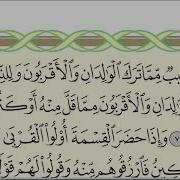 يبٌ مِّمَّا تَرَكَ الْوَالِدَانِ وَالْأَقْرَبُونَ وَلِلنِّ
لِدَانِ وَالْأَقْرَبُونَ مِمَّا قَلَّ مِنْهُ أَوْ كَثُ
٧ وَإِذَا حَضَرَ الْقِسْمَةَ أُوْلُوا الْقُرْبَى
كِينُ فَارْزُقُوهُم مِّنْهُ وَقُولُوا لَهُمْ قَوْلً